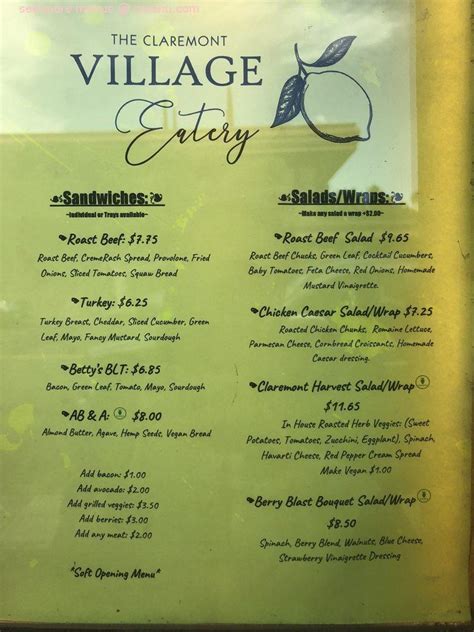 THE CLAREMONT
VILLAGE
Eatery
Sandwiches:
~Individual or Trays available~
Roast Beef: $7.75
Roast Beef, CremeRash Spread, Provolone, Fried
Onions, Sliced Tomatoes, Squaw Bread
Turkey: $6.25
Turkey Breast, Cheddar, Sliced Cucumber, Green
Leaf, Mayo, Fancy Mustard, Sourdough
Betty's BLT: $6.85
Bacon, Green Leaf, Tomato, Mayo, Sourdough
AB & A: $8.00
Almond Butter, Agave, Hemp Seeds, Vegan Bread
Add bacon: $1.00
Add avocado: $2.00
Add grilled veggies: $3.50
Add berries: $3.00
Add any meat: $2.00
*Soft Opening Menu*
Salads/Wraps:
~Make any salad a wrap +$2.00~
Roast Beef Salad $9.65
Roast Beef Chucks, Green Leaf, Cocktail Cucumbers,
Baby Tomatoes, Feta Cheese, Red Onions, Homemade
Mustard Vinaigrette.
Chicken Caesar Salad/Wrap $7.25
Roasted Chicken Chunks, Romaine Lettuce,
Parmesan Cheese, Cornbread Croissants, Homemade
Caesar dressing.
Claremont Harvest Salad/Wrap
$11.65
In House Roasted Herb Veggies: (Sweet
Potatoes, Tomatoes, Zucchini, Eggplant), Spinach,
Havarti Cheese, Red Pepper Cream Spread
Make Vegan $1.00
Berry Blast Bouquet Salad/Wrap
$8.50
Spinach, Berry Blend, Walnuts, Blue Cheese,
Strawberry Vinaigrette Dressing